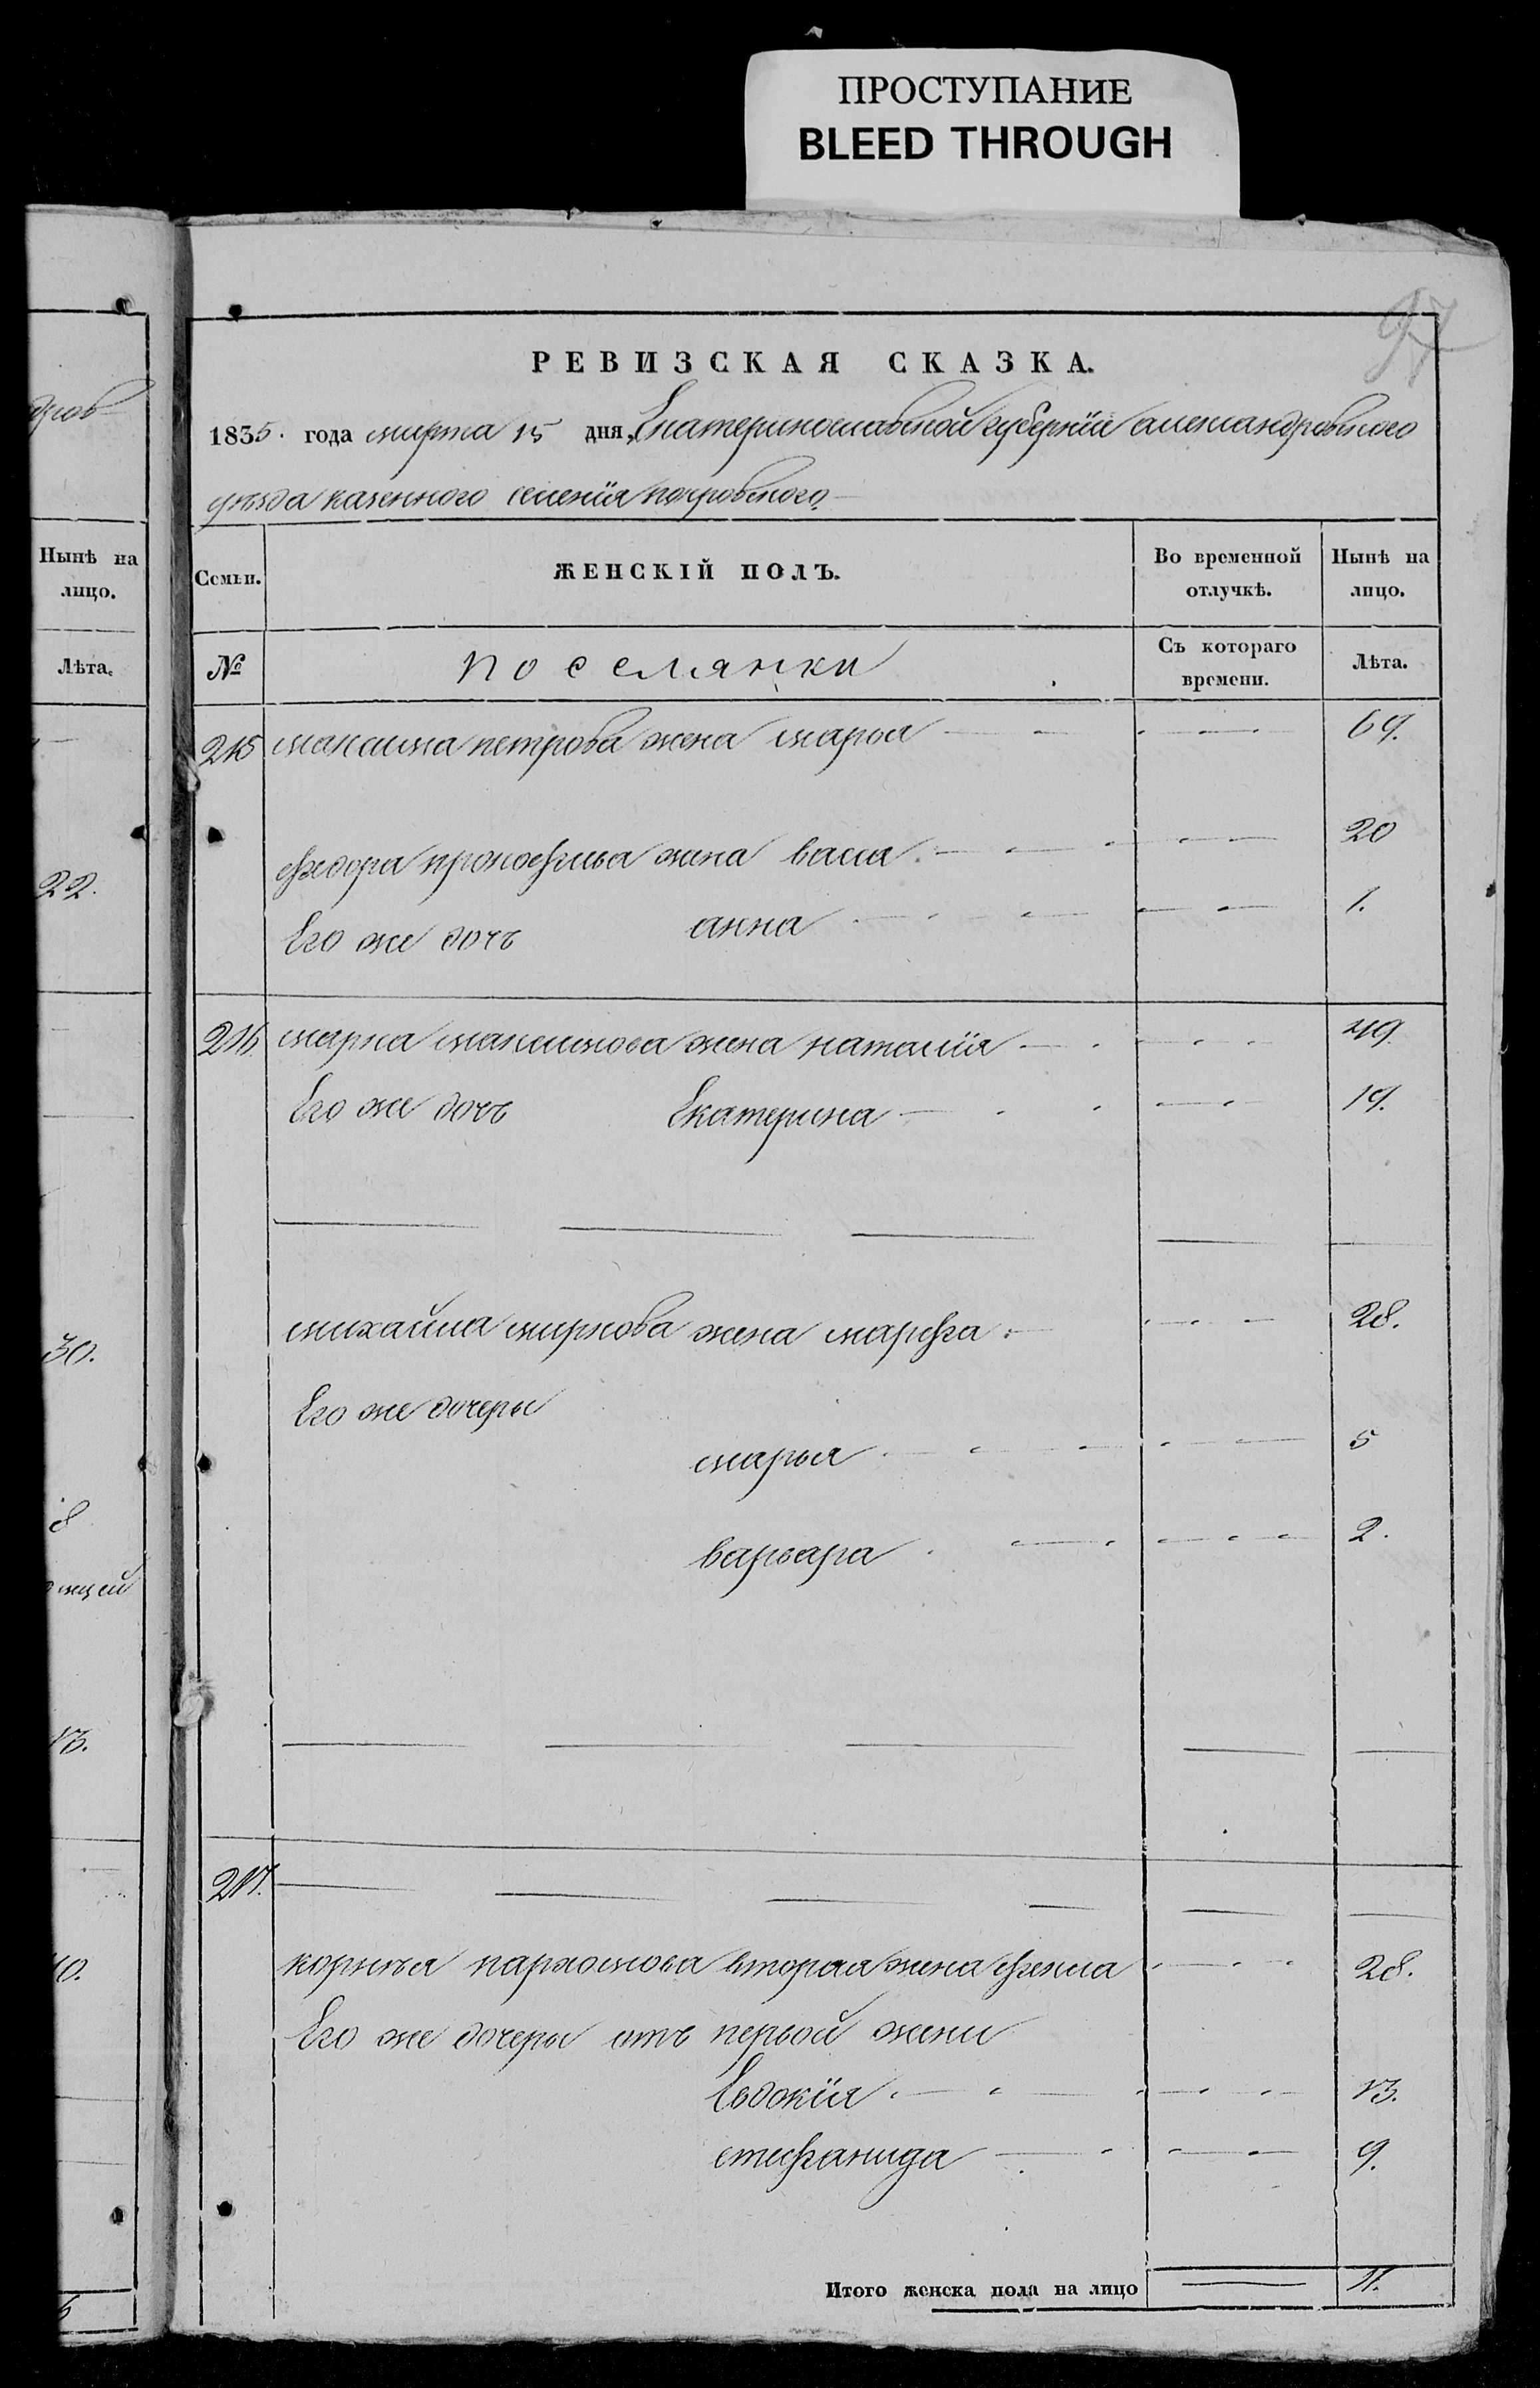 ПРОСТУПАНИЕ
BLEED THROUGH
97
РЕВИЗСКАЯ СКАЗКА.
1835. года марта 15 дня, Екатеринославской губернїи александровского
уѣзда казенного селенїя покровского
Семьи.
ЖЕНСКІЙ ПОЛЪ.
Во временной отлучкѣ.
Нынѣ на лицо.
№
поселянки
Съ котораго времени.
Лѣта.
215 максима петрова жена марья 69.
федора прокофьева жена васса 20
Его же дочъ анна 1.
216. марка максимова жена наталїя 49
Его же дочъ Екатерина 19.
михайла маркова жена марфа 28.
Его же дочери
марья 5
варвара 2.
217.
корнѣя пархомова вторая жена фекла 28.
Его же дочери отъ первой жени
Евдокїя 13.
стефанида 9.
Итого женска пола на лицо 11.
Нынѣ на лицо.
Лѣта.
22.
30.
8
13.